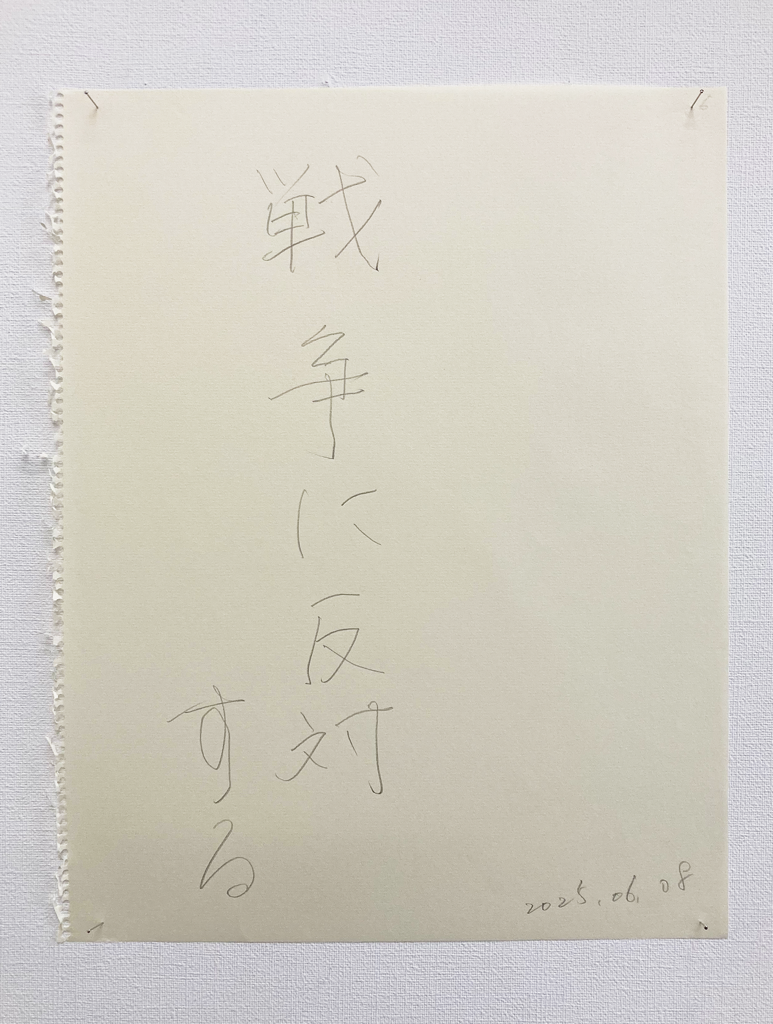 戦争に反対
する
2025.06.08